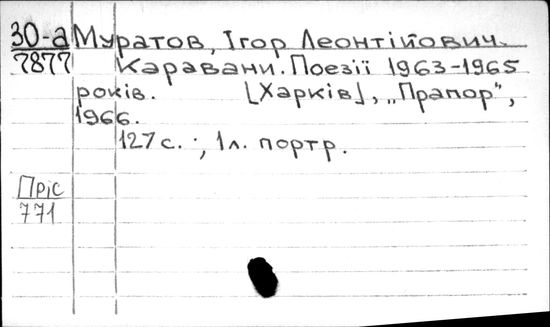 30-а Муратов, Ігор Леонтійович.
7877 Каравани. Поезії 1963-1965
років. [Харків], „Прапор",
1966.
127 с. ; 1 л. портр.
Пріс
771